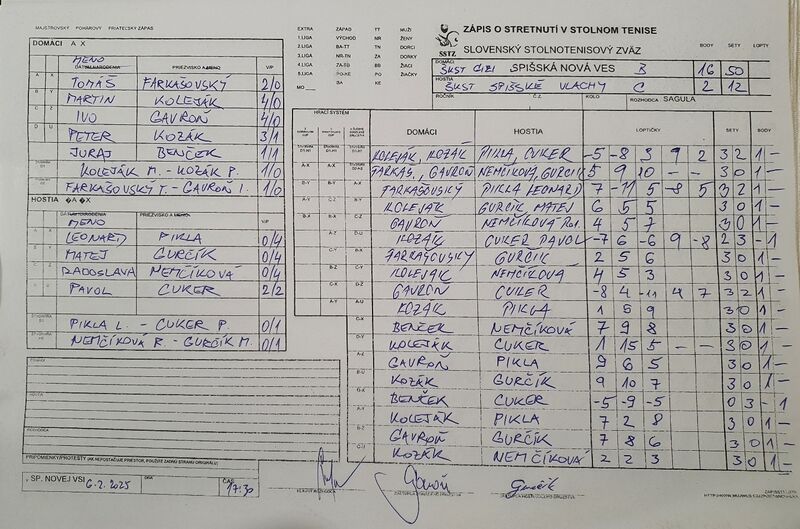 MAJSTROVSKÝ POHÁROVÝ PRIATEĽSKÝ ZÁPAS
ZÁPIS O STRETNUTÍ V STOLNOM TENISE
SLOVENSKÝ STOLNOTENISOVÝ ZVÄZ
SSTZ
BODY SETY LOPTY
DOMÁCI ŠKST SPIŠSKÁ NOVÁ VES B 16 50
HOSTIA ŠKST SPIŠSKÉ VLACHY C 2 12
ROČNÍK Č.Z. KOLO ROZHODCA SAGULA
EXTRA DOPAS TT MUŽI
I.LIGA VÝCHOD NR ŽENY
2.LIGA BA-TT TN DORCI
3.LIGA NR-TN ZA DORKY
4.LIGA ZA-BB BB ŽIACI
5.LIGA PO-KE PO ŽIAČKY
BA KE
MO
DOMÁCI A X
MENO
PRIEZVISKO A MENO V/P
TOMÁŠ FARKAŠOVSKÝ 2/0
MARTIN KOLEJÁK 4/0
IVO GAVROŇ 4/0
PETER KOZÁK 3/1
JURAJ BENČEK 1/1
KOLEJÁK M. - KOZÁK P. 1/0
FARKAŠOVSKÝ T. - GAVROŇ I. 1/0
HOSTIA A X
MENO
PRIEZVISKO A MENO V/P
LEONARD PIKLA 0/4
MATEJ GURČÍK 0/4
RADOSLAVA NEMČÍKOVÁ 0/4
PAVOL CUKER 2/2
PIKLA L. - CUKER P. 0/1
NEMČÍKOVÁ R. - GURČÍK M. 0/1
HRACÍ SYSTÉM
DOMÁCI HOSTIA LOPTIČKY SETY BODY
KOLEJÁK, KOZÁK PIKLA, CUKER -5 -8 3 9 2 3 2 1 -
FARKAŠ., GAVROŇ NEMČÍKOVÁ, GURČÍK 5 9 10 - - 3 0 1 -
FARKAŠOVSKÝ PIKLA LEONARD 7 -11 5 -8 5 3 2 1 -
KOLEJÁK GURČÍK MATEJ 6 5 5 3 0 1 -
GAVROŇ NEMČÍKOVÁ 4 5 7 3 0 1 -
KOZÁK CUKER PAVOL -7 6 -6 9 -8 2 3 - 1
FARKAŠOVSKÝ GURČÍK 2 5 6 3 0 1 -
KOLEJÁK NEMČÍKOVÁ 4 5 3 3 0 1 -
GAVROŇ CUKER -8 4 -11 4 7 3 2 1 -
KOZÁK PIKLA 3 0 1 -
BENČEK NEMČÍKOVÁ 7 9 8 3 0 1 -
KOLEJÁK CUKER 1 15 5 - - 3 0 1 -
GAVROŇ PIKLA 9 6 5 3 0 1 -
KOZÁK GURČÍK 9 10 7 3 0 1 -
BENČEK CUKER -5 -9 -5 0 3 - 1
KOLEJÁK PIKLA 7 2 8 3 0 1 -
GAVROŇ GURČÍK 7 8 6 3 0 1 -
KOZÁK NEMČÍKOVÁ 2 2 3 3 0 1 -
DOMÁCI
HOSTIA
ROZHODCA
PRIPOMIENKY/PROTESTY (AK NEPOSTAČUJE PRIESTOR, POUŽITE ZADNÚ STRANU ORIGINÁLU)
V SP. NOVEJ VSI 6.2.2025 DŇA ČAS 17:30
HLAVNÝ ROZHODCA
Gavroň
Gurčík